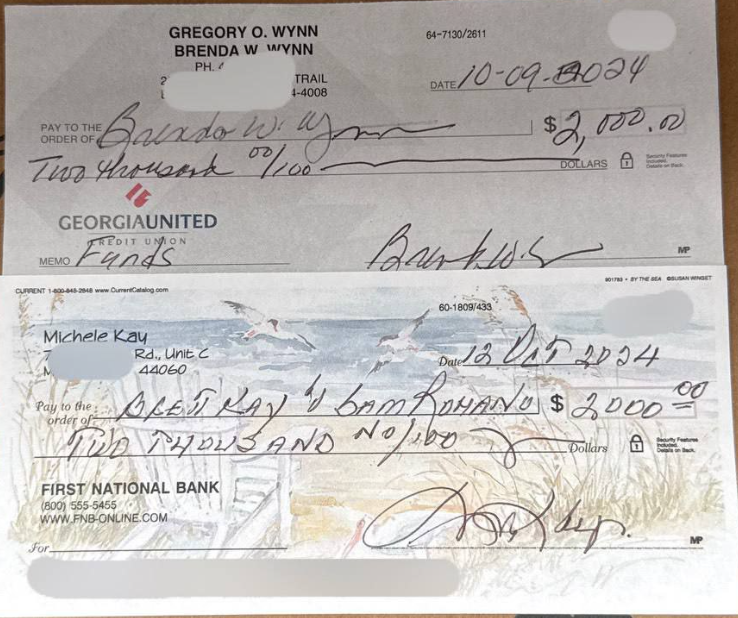 GREGORY O. WYNN
BRENDA W. WYNN
PH.
TRAIL
4-4008
64-7130/2611
DATE 10-09-2024
PAY TO THE ORDER OF Brenda W. Wynn $ 2,000.00
Two thousand 00/100 DOLLARS
Security Features Included. Details on Back.
GEORGIAUNITED
CREDIT UNION
MEMO Funds
MP
CURRENT 1-800-848-2848 www.CurrentCatalog.com
BY THE SEA ©SUSAN WINGET
60-1809/433
Michele Kay
Rd., Unit C
44060
Date 12 OCT 2024
Pay to the order of BRETT KAY SAM ROMANO $ 2000 00
TWO THOUSAND NO/100 Dollars
Security Features Included. Details on Back.
FIRST NATIONAL BANK
(800) 555-5455
WWW.FNB-ONLINE.COM
For
MP